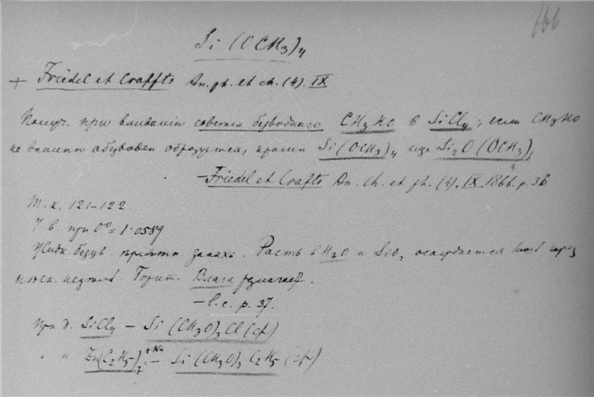 166
Si(OCH3)4
+ Friedel et Craffts An. ph. et ch. (4). IX
Получ. при вливаніи совсѣмъ безводнаго CH3HO в SiCl4; если CH3HO
не вполнѣ обезвожен образуется, кромѣ Si(OCH3)4 еще Si2O(OCH3)6
– Friedel et Crafts An. Ch. et ph. (4). IX. 1866. p. 36
Т. к. 121–122
У. в. при 0° = 1.0589
Жидк. безцв. запахъ. Раств. H2O и SiO2 осаждается
Горит. Влага разлагает.
– l. c. p. 37.
При д. SiCl4 – Si(CH3O)3Cl (cf)
" " Zn(C2H5)2 + Na – Si(CH3O)3C2H5 (cf)